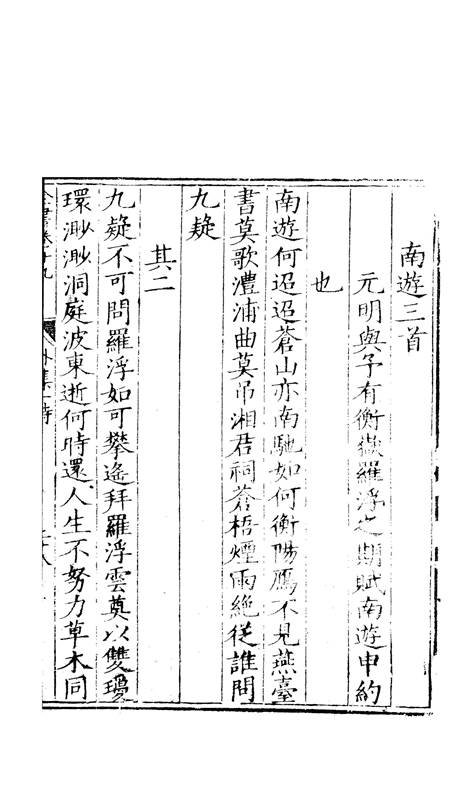 南遊三首
元明與予有衡嶽羅浮之期賦南遊申約
也
南遊何迢迢蒼山亦南馳如何衡陽鴈不見燕臺
書莫歌澧浦曲莫吊湘君祠蒼梧煙雨絶從誰問
九疑
其二
九疑不可問羅浮如可攀遙拜羅浮雲奠以雙瓊
環渺渺洞庭波東逝何時還人生不努力草木同
全書卷十九 外集一 詩